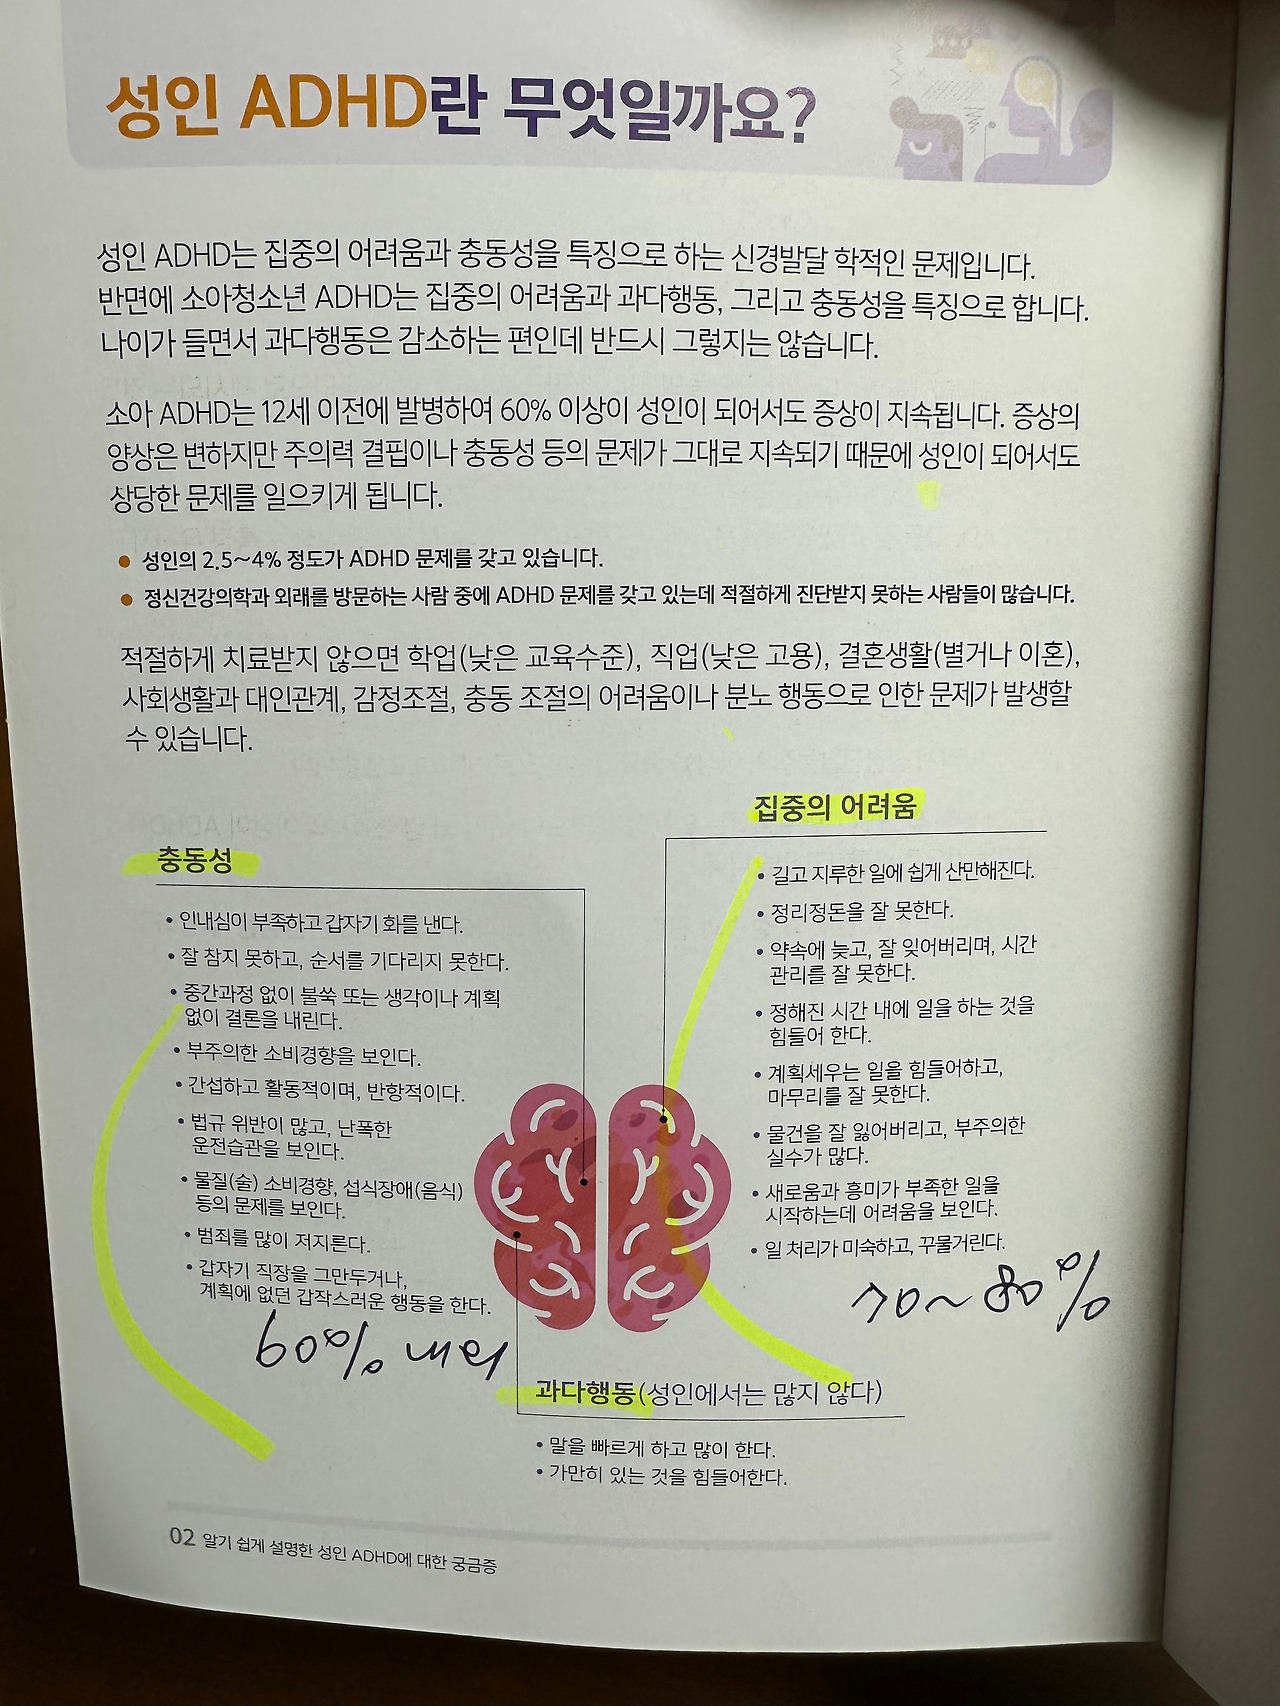 성인 ADHD란 무엇일까요?
성인 ADHD는 집중의 어려움과 충동성을 특징으로 하는 신경발달 학적인 문제입니다.
반면에 소아청소년 ADHD는 집중의 어려움과 과다행동, 그리고 충동성을 특징으로 합니다.
나이가 들면서 과다행동은 감소하는 편인데 반드시 그렇지는 않습니다.
소아 ADHD는 12세 이전에 발병하여 60% 이상이 성인이 되어서도 증상이 지속됩니다. 증상의
양상은 변하지만 주의력 결핍이나 충동성 등의 문제가 그대로 지속되기 때문에 성인이 되어서도
상당한 문제를 일으키게 됩니다.
● 성인의 2.5~4% 정도가 ADHD 문제를 갖고 있습니다.
● 정신건강의학과 외래를 방문하는 사람 중에 ADHD 문제를 갖고 있는데 적절하게 진단받지 못하는 사람들이 많습니다.
적절하게 치료받지 않으면 학업(낮은 교육수준), 직업(낮은 고용), 결혼생활(별거나 이혼),
사회생활과 대인관계, 감정조절, 충동 조절의 어려움이나 분노 행동으로 인한 문제가 발생할
수 있습니다.
충동성
• 인내심이 부족하고 갑자기 화를 낸다.
• 잘 참지 못하고, 순서를 기다리지 못한다.
• 중간과정 없이 불쑥 또는 생각이나 계획
없이 결론을 내린다.
• 부주의한 소비경향을 보인다.
• 간섭하고 활동적이며, 반항적이다.
• 법규 위반이 많고, 난폭한
운전습관을 보인다.
• 물질(술) 소비경향, 섭식장애(음식)
등의 문제를 보인다.
• 범죄를 많이 저지른다.
• 갑자기 직장을 그만두거나,
계획에 없던 갑작스러운 행동을 한다.
60% 내외
집중의 어려움
• 길고 지루한 일에 쉽게 산만해진다.
• 정리정돈을 잘 못한다.
• 약속에 늦고, 잘 잊어버리며, 시간
관리를 잘 못한다.
• 정해진 시간 내에 일을 하는 것을
힘들어 한다.
• 계획세우는 일을 힘들어하고,
마무리를 잘 못한다.
• 물건을 잘 잃어버리고, 부주의한
실수가 많다.
• 새로움과 흥미가 부족한 일을
시작하는데 어려움을 보인다.
• 일 처리가 미숙하고, 꾸물거린다.
70~80%
과다행동(성인에서는 많지 않다)
• 말을 빠르게 하고 많이 한다.
• 가만히 있는 것을 힘들어한다.
02 알기 쉽게 설명한 성인 ADHD에 대한 궁금증